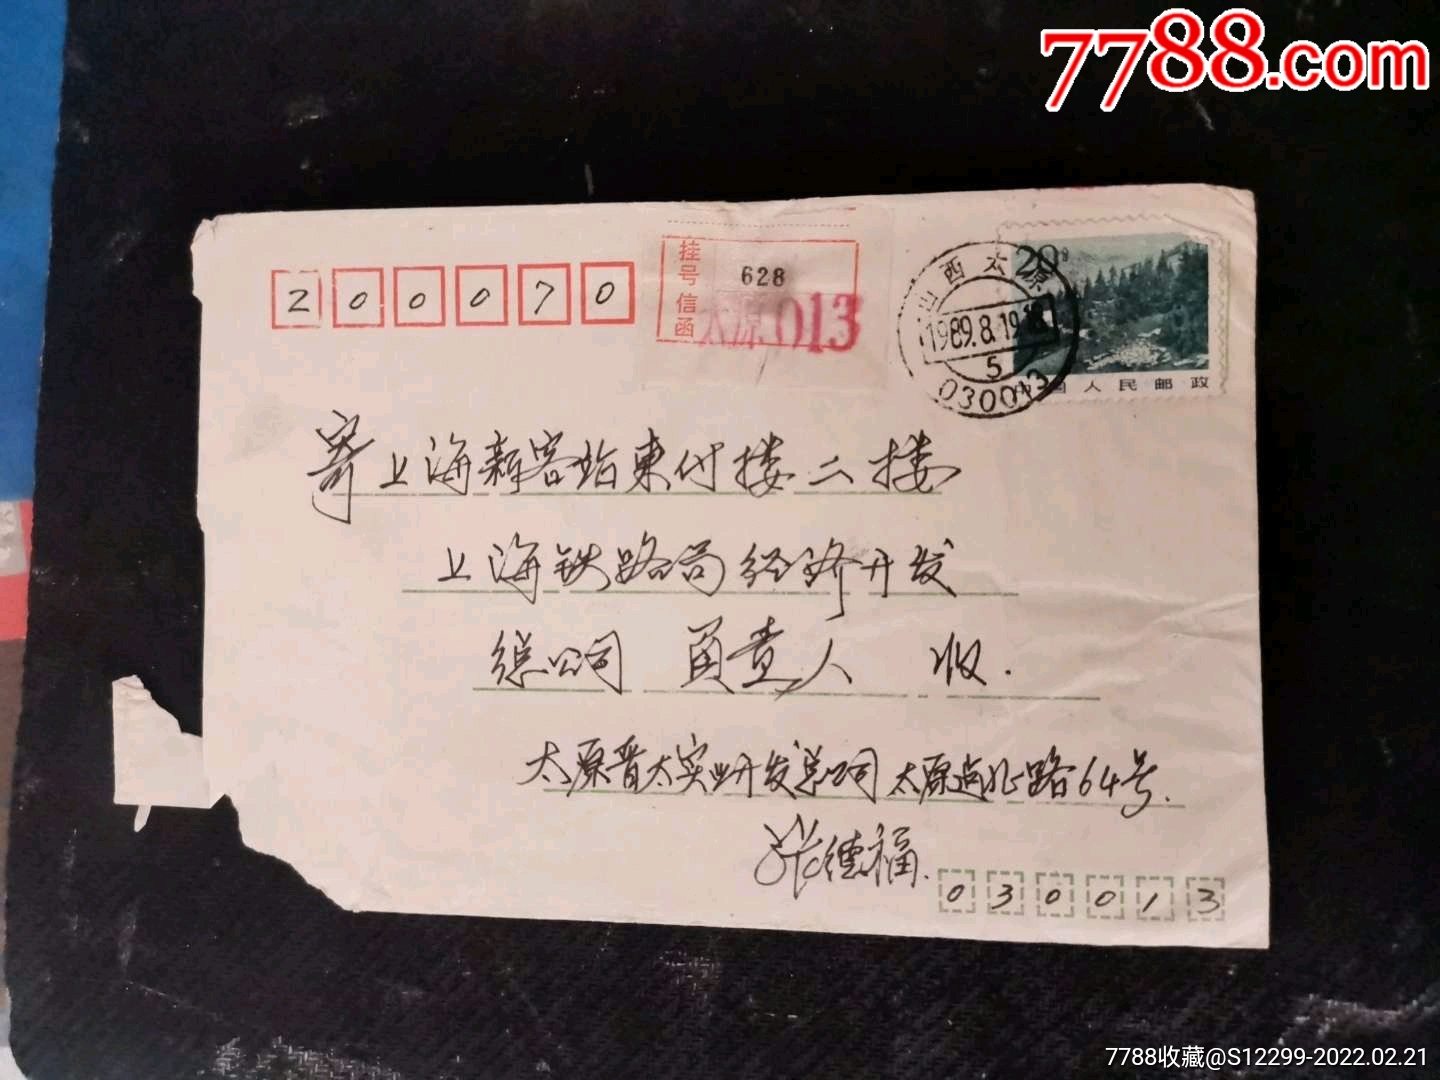 7788.com
200070
挂号信函
628
太原013
山西太原
1989.8.19.18
5
030013
20分
中国人民邮政
寄上海新客站東付楼二楼
上海铁路局经济开发
总公司 负责人 收.
太原晋太实业开发总公司太原站北路64号.
张德福.
030013
7788收藏@S12299-2022.02.21